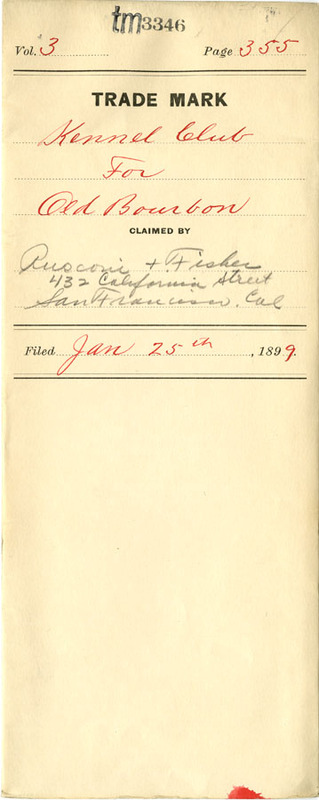 tm3346
Vol. 3 Page 355
TRADE MARK
Kennel Club
For
Old Bourbon
CLAIMED BY
Rusconi + Fisher
432 California Street
San Francisco. Cal
Filed Jan 25th, 1899.